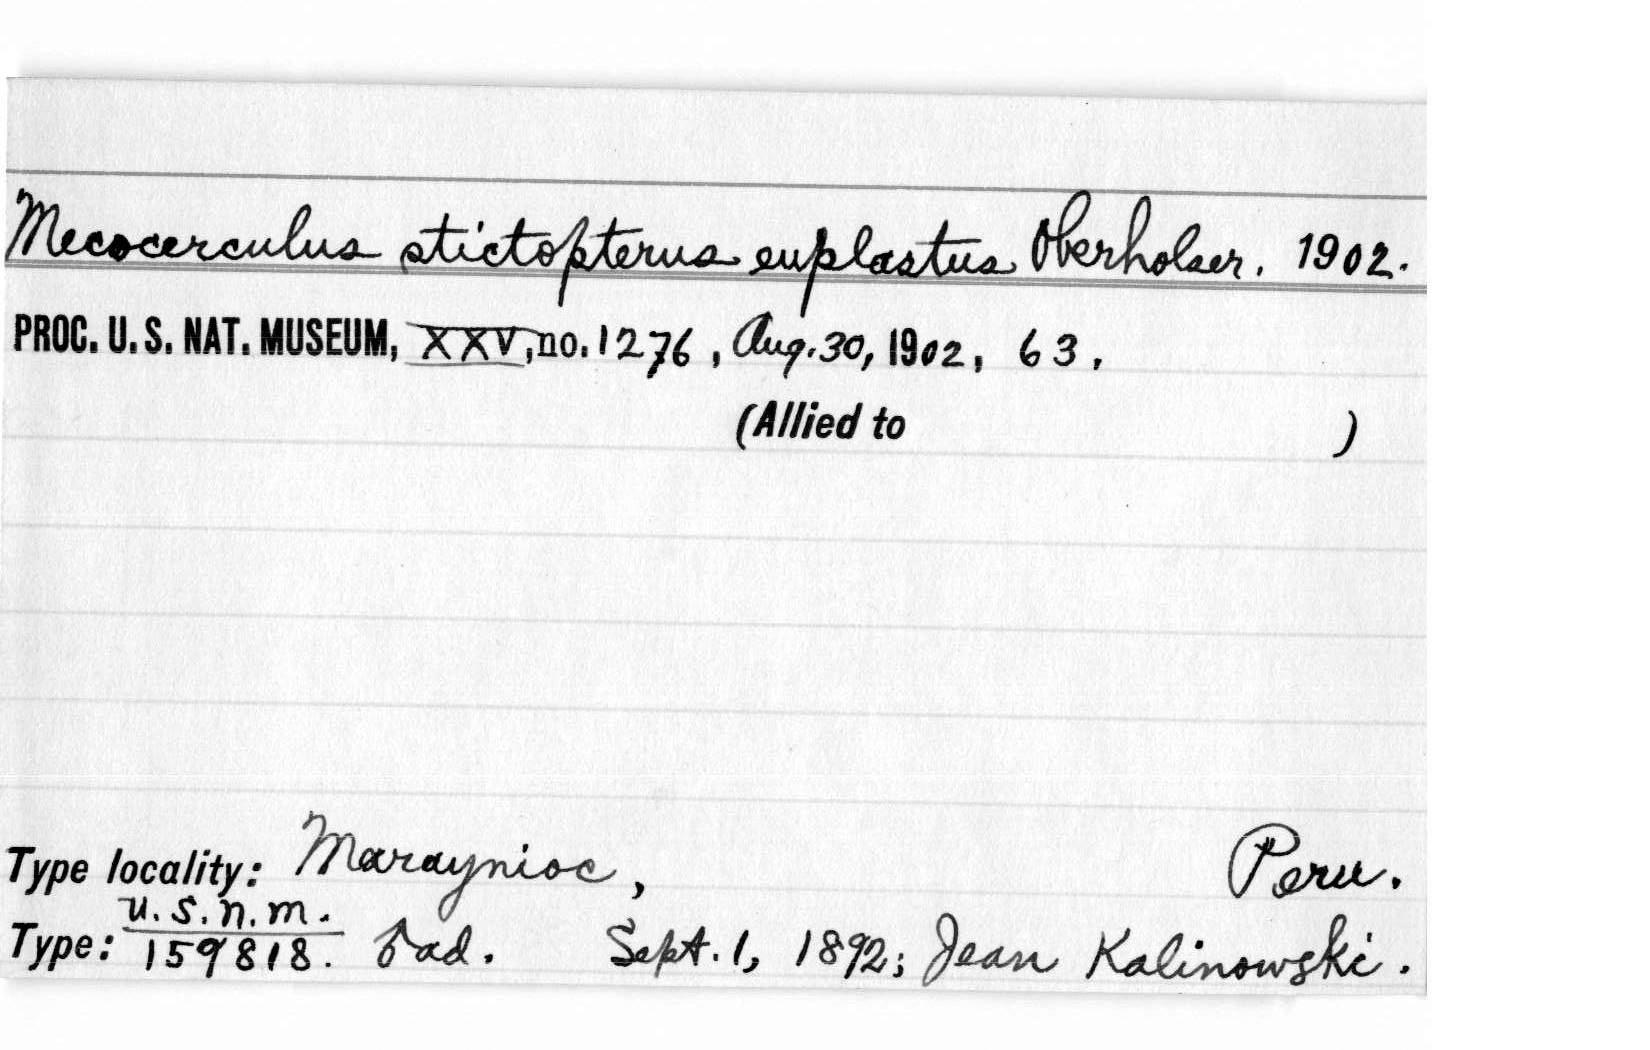 Mecocerculus stictopterus euplastus Oberholser. 1902.
PROC. U. S. NAT. MUSEUM, XXV, no. 1276, Aug. 30, 1902, 63.
(Allied to )
Type locality: Maraynioc, Peru.
U.S.N.M.
Type: 159818. ♂ ad. Sept. 1, 1892; Jean Kalinowski.